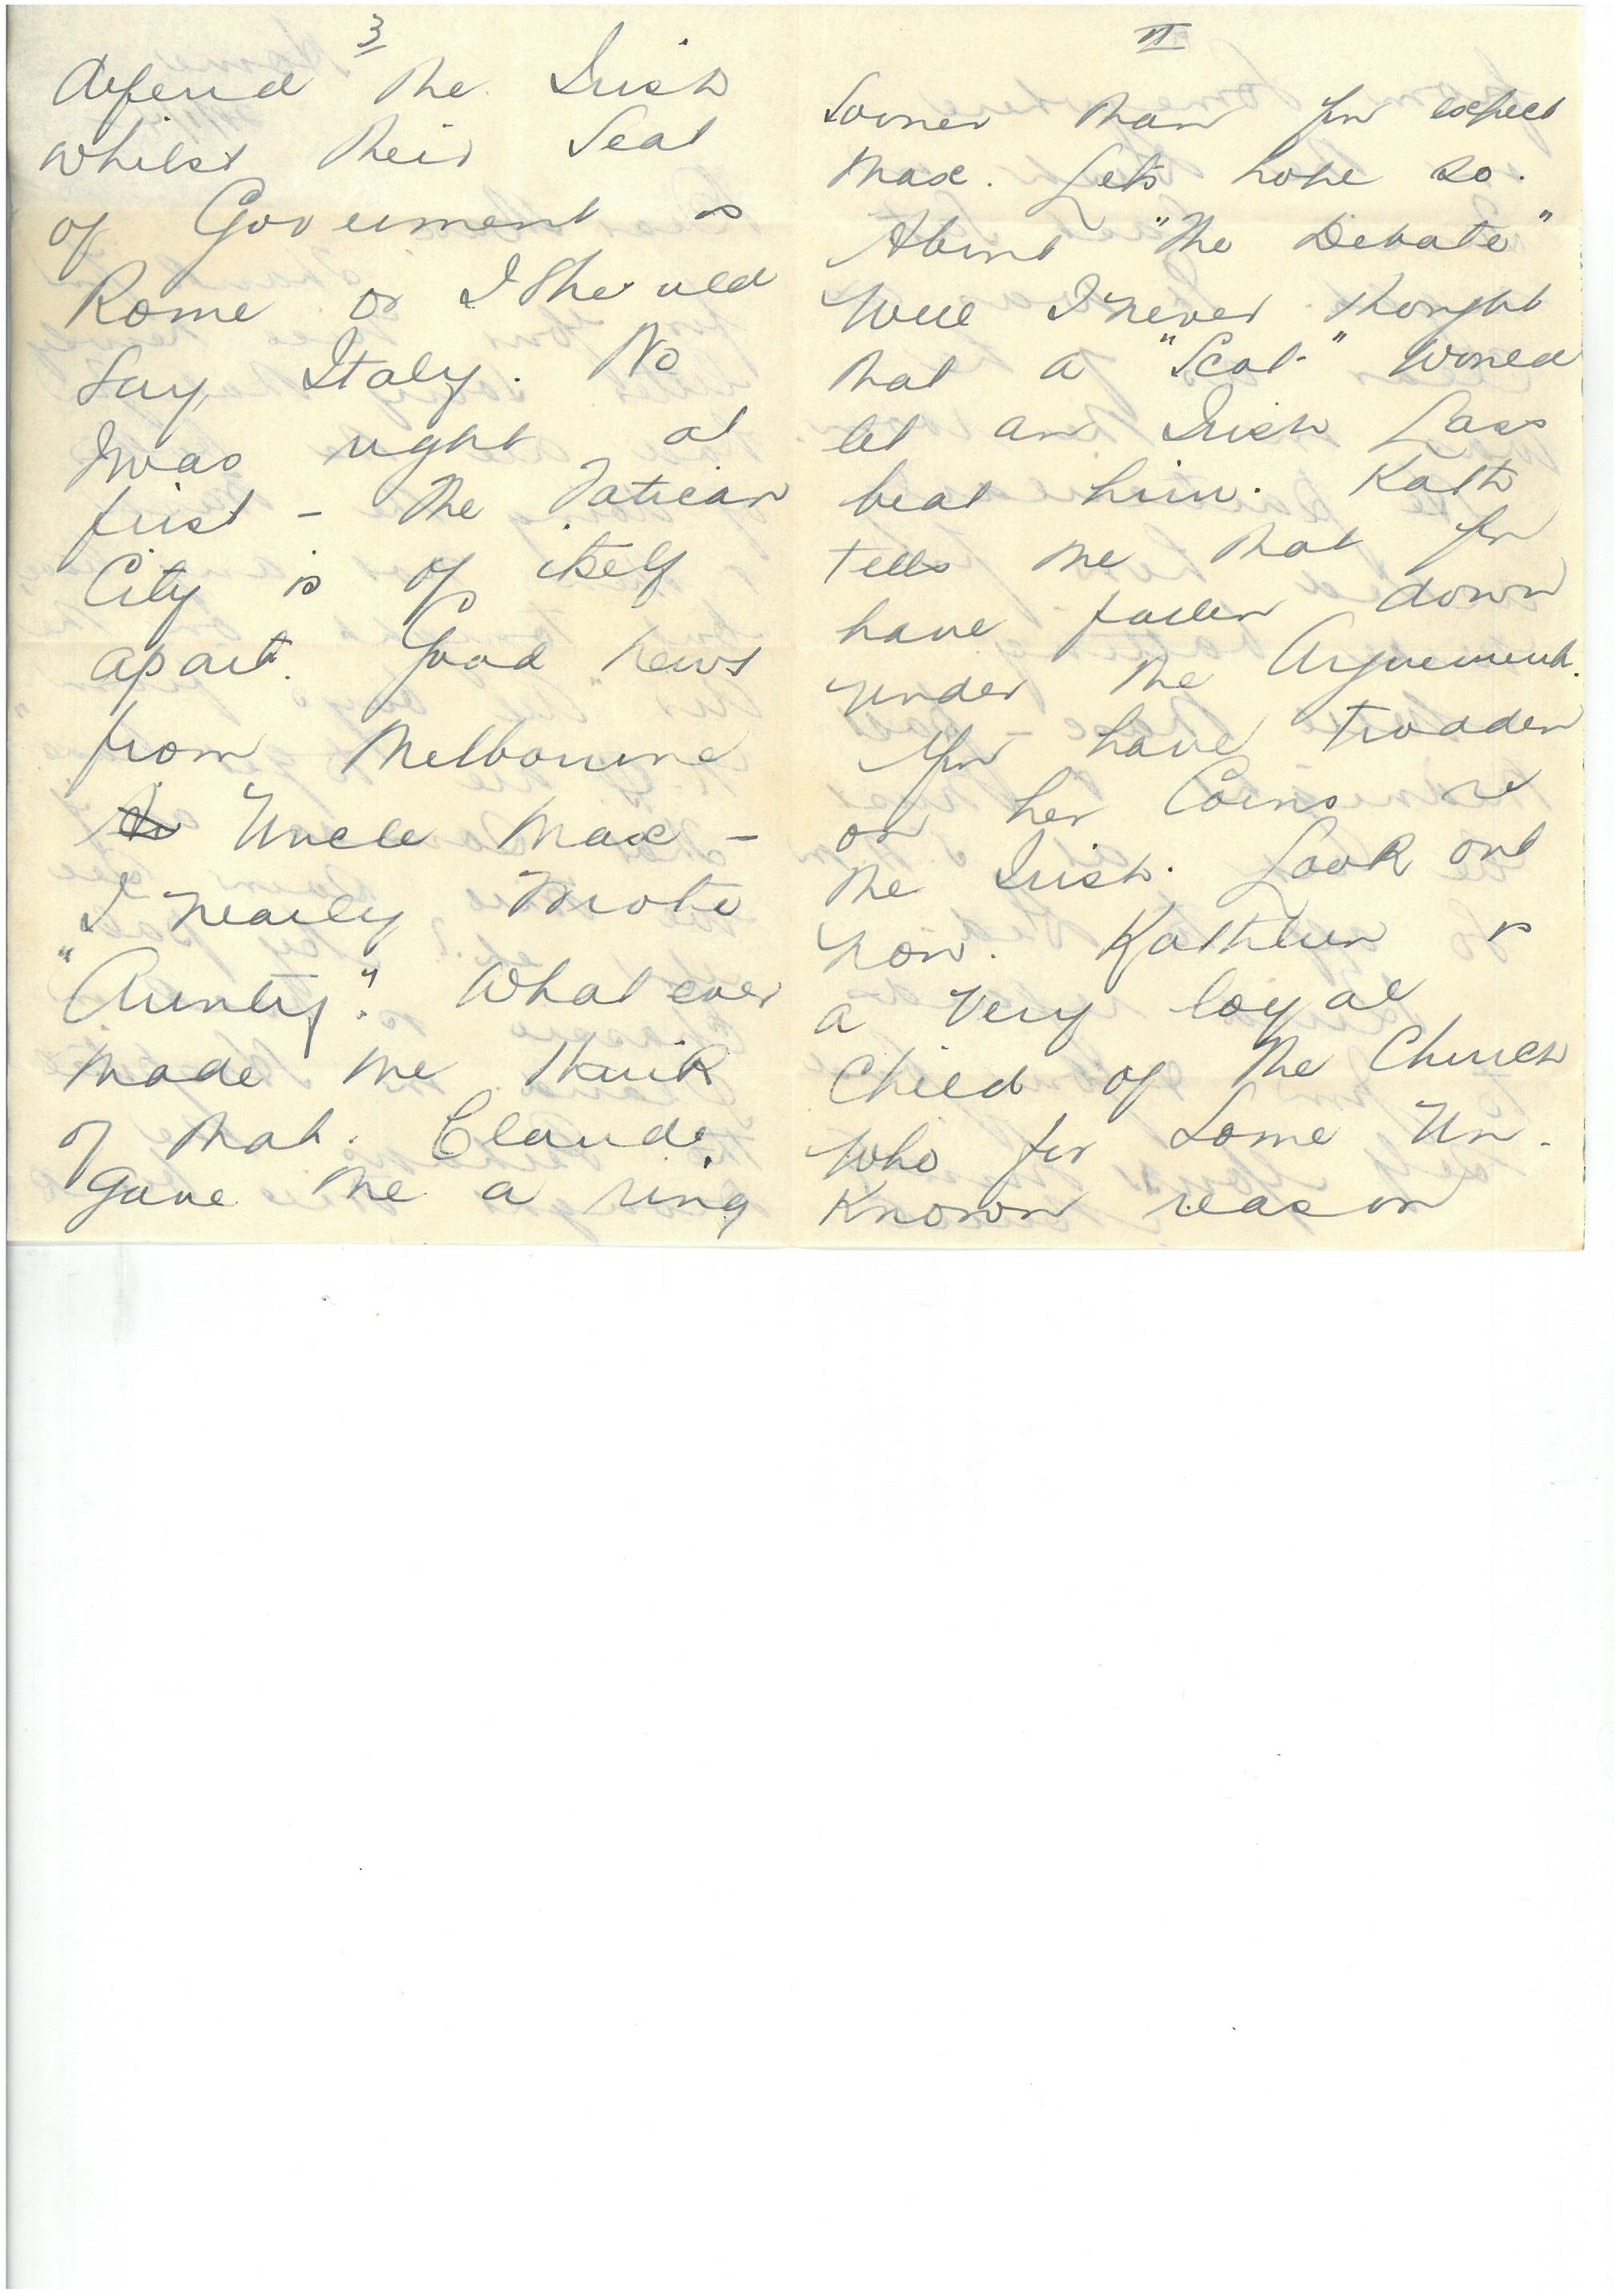 3
defend the Irish
whilst their Seat
of Goverment is
Rome or I Should
Say, Italy. No
I was right at
first - The Vatican
City is of itself
apart. Good news
from Melbourne
Uncle Max -
I nearly wrote
"Aunty". What ever
made me think
of that. Claude,
gave me a ring
II
Sooner than you expect
Max. Lets hope so.
About "The Debate"
Well I never thought
that a "Scot" would
let an Irish Lass
beat him. Kath
tells me that you
have fallen down
under the Arguement.
You have trodden
on her Corns re
the Irish. Look out
now. Kathleen is
a very loyal
Child of the Church
who for some Un-
known reason